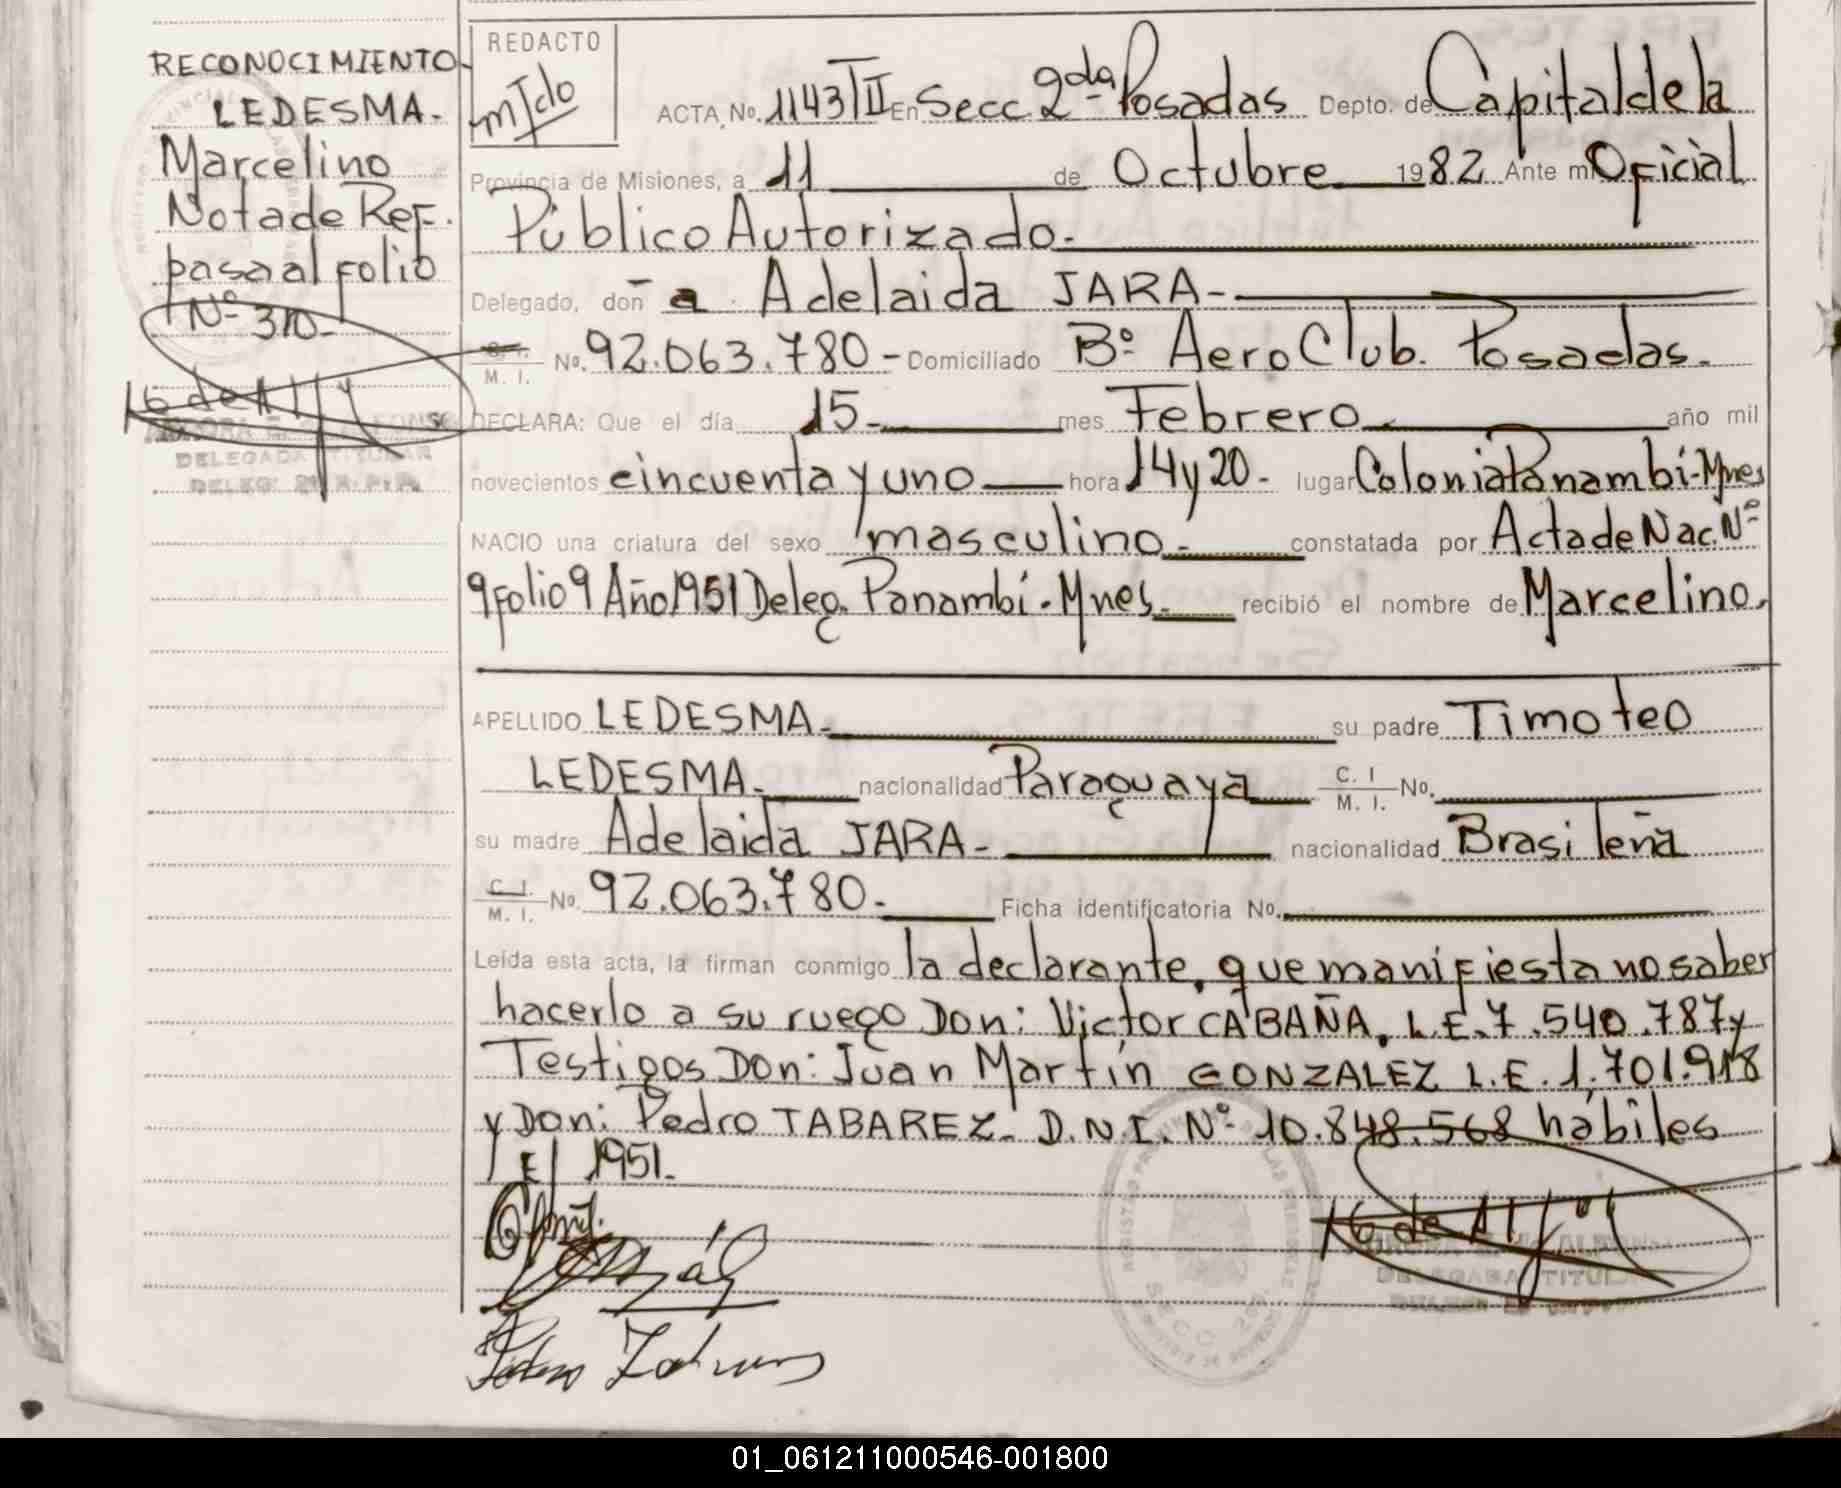 RECONOCIMIENTO
LEDESMA.
Marcelino
Nota de Ref.
pasa al folio
Nº 310-
DELEGADA TITULAR
REDACTO
ACTA No. 1143 TII En Secc 2da Posadas Depto. de Capital de la
Provincia de Misiones, a 11 de Octubre 1982 Ante mi Oficial
Público Autorizado.
Delegado, don a Adelaida JARA-
C. I. M. I. No. 92.063.780- Domiciliado Bº Aero Club. Posadas.
DECLARA: Que el día 15- mes Febrero año mil
novecientos cincuenta y uno hora 14 y 20- lugar Colonia Panambí-Mnes
NACIO una criatura del sexo masculino- constatada por Acta de Nac. Nº
9 folio 9 Año 1951 Deleg. Panambí-Mnes. recibió el nombre de Marcelino.
APELLIDO LEDESMA. su padre Timoteo
LEDESMA. nacionalidad Paraguaya C. I M. I. No.
su madre Adelaida JARA- nacionalidad Brasileña
C. I. M. I. No. 92.063.780.- Ficha identificatoria No.
Leída esta acta, la firman conmigo la declarante, que manifiesta no saber
hacerlo a su ruego Don: Victor CABAÑA, L.E. 7.540.787 y
Testigos Don: Juan Martín GONZALEZ L.E. 1.701.918
y Don: Pedro TABAREZ. D.N.I. Nº 10.848.568 hábiles
El 1951.
DELEGADA TITULAR
01_061211000546-001800